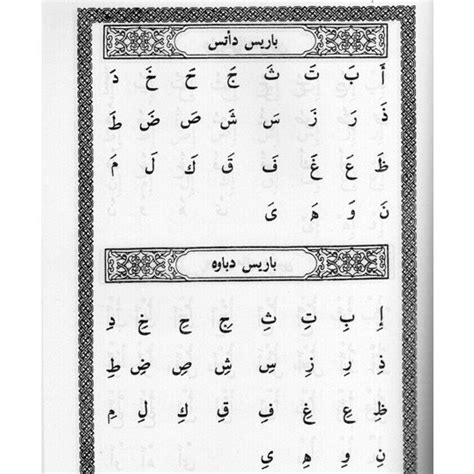 باريس دأتس
أَ بَ تَ ثَ جَ حَ خَ دَ
ذَ رَ زَ سَ شَ صَ ضَ طَ
ظَ عَ غَ فَ قَ كَ لَ مَ
نَ وَ هَ یَ
باريس دباوه
إِ بِ تِ ثِ جِ حِ خِ دِ
ذِ رِ زِ سِ شِ صِ ضِ طِ
ظِ عِ غِ فِ قِ كِ لِ مِ
نِ وِ هِ یِ